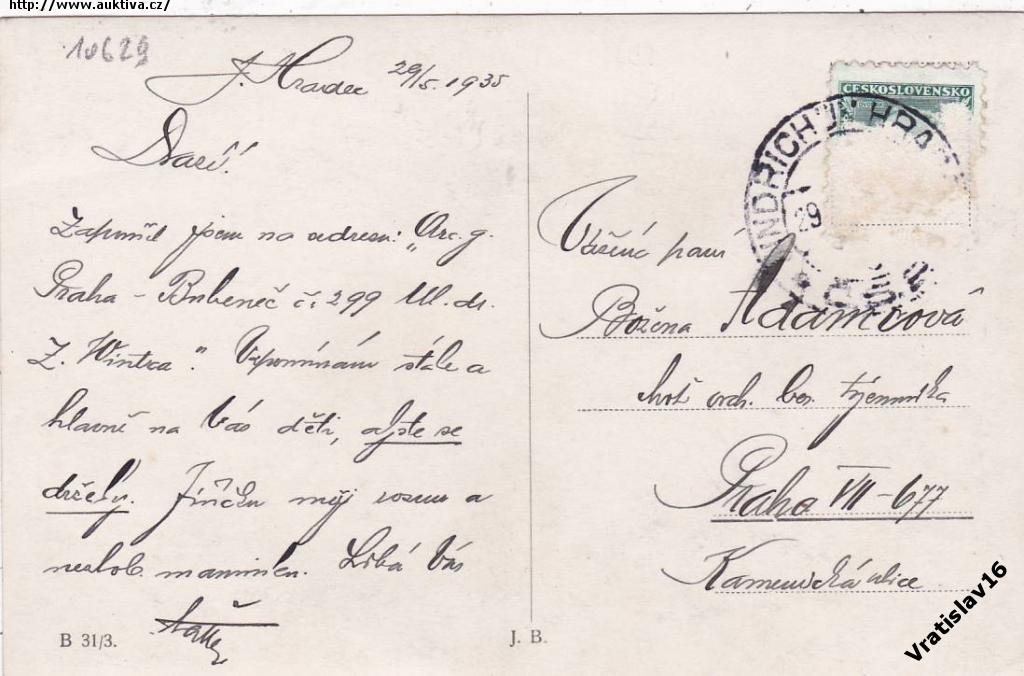 http://www.auktiva.cz/
10629
J. Hradec 29/5. 1935
Drazí!
Zapomněl jsem na adresu: „Arc. g.
Praha - Bubeneč č. 299 Ul. dr.
Z. Wintra". Vzpomínám stále a
hlavně na Vás děti,
držely. Jiříčku měj rozum a
nezlob maminku. Líbá Vás
B 31/3.
J. B.
ČESKOSLOVENSKO
JINDŘICHŮV HRADEC
29
Vážená paní
Božena Adamcová
choť tajemníka
Praha VII - 677
Kamenická ulice
Vratislav16